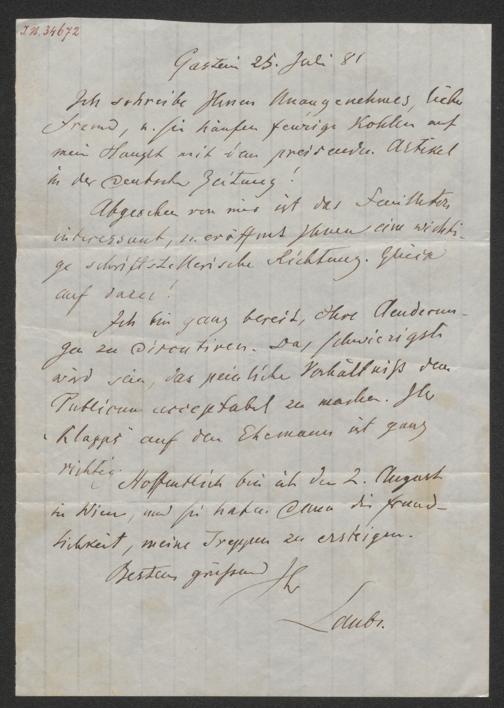 I.N. 34672
Gastein 25. Juli 81
Ich schreibe Ihnen Unangenehmes, lieber
Freund, u. Sie häufen feurige Kohlen auf
mein Haupt mit dem preisenden Artikel
in der Deutschen Zeitung!
Abgesehen von mir ist das Feuilleton
interessant, u. eröffnet Ihnen eine wichti-
ge schriftstellerische Richtung. Glück
auf dazu!
Ich bin ganz bereit, Ihre Aenderun-
gen zu discutiren. Das Schwierigste
wird sein, das peinliche Verhältniß dem
Publicum acceptabel zu machen. Ihr
"Klapps" auf den Ehemann ist ganz
richtig.
Hoffentlich bin ich den 2. August
in Wien, und Sie haben dann die Freund-
lichkeit, meine Treppen zu ersteigen.
Bestens grüßend Ihr
Laube.